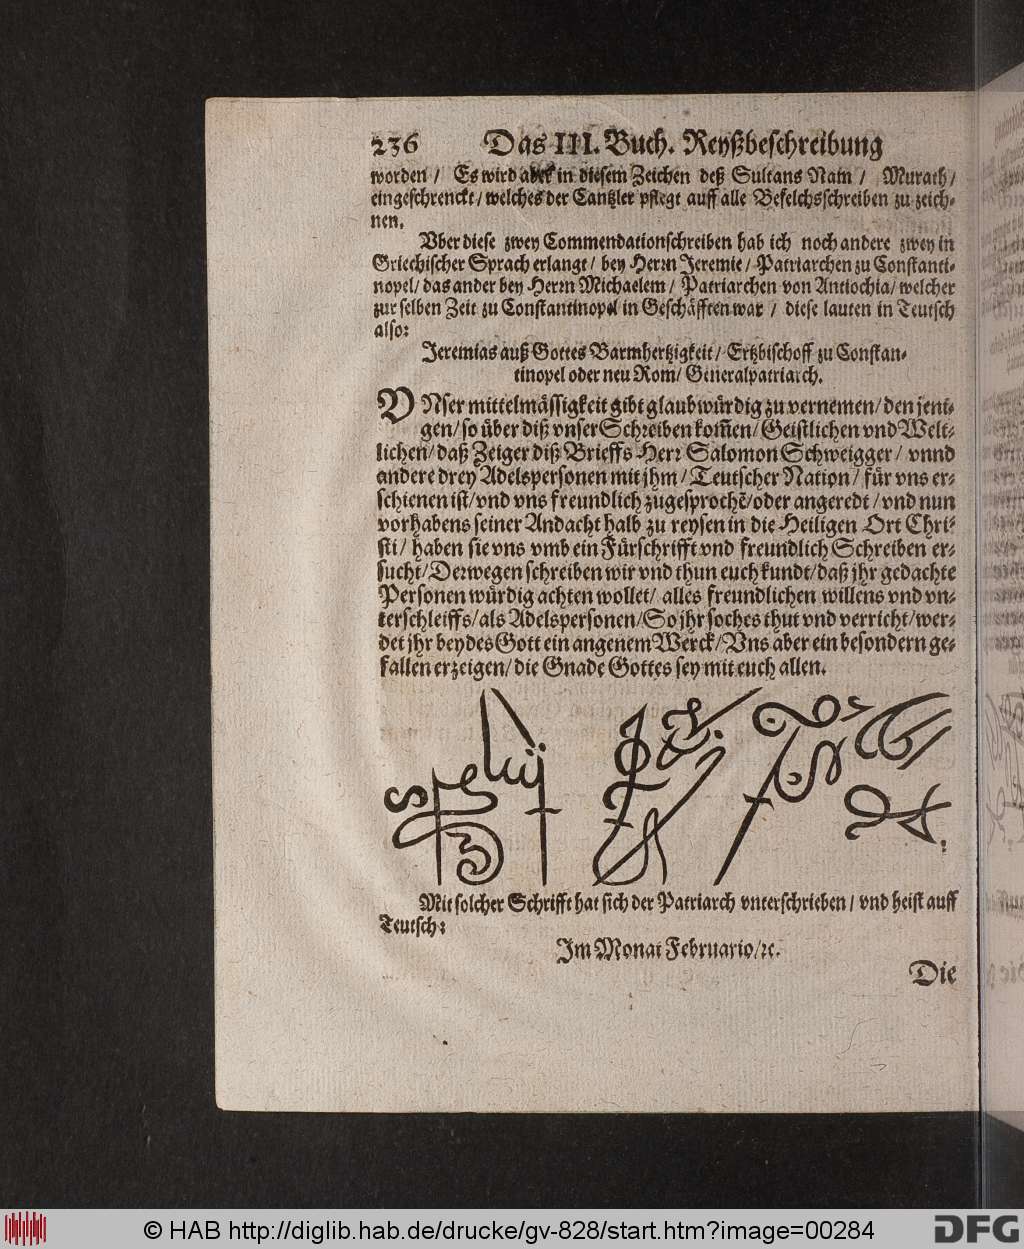 236 Das III. Buch. Reyßbeschreibung
worden / Es wird aber in diesem Zeichen deß Sultans Nam / Murath /
eingeschrenckt / welches der Cantzler pflegt auff alle Befelchsschreiben zu zeich-
nen.
Vber diese zwey Commendationschreiben hab ich noch andere zwey in
Griechischer Sprach erlangt / bey Herrn Jeremie / Patriarchen zu Constanti-
nopel / das ander bey Herrn Michaelem / Patriarchen von Antiochia / welcher
zur selben Zeit zu Constantinopel in Geschäfften war / diese lauten in Teutsch
also:
Jeremias auß Gottes Barmhertzigkeit / Ertzbischoff zu Constan-
tinopel oder neu Rom / Generalpatriarch.
VNser mittelmässigkeit gibt glaubwürdig zu vernemen / den jeni-
gen / so über diß vnser Schreiben kom̃en / Geistlichen vnd Welt-
lichen / daß Zeiger diß Brieffs Herr Salomon Schweigger / vnnd
andere drey Adelspersonen mit jhm / Teutscher Nation / für vns er-
schienen ist / vnd vns freundlich zugesprochẽ / oder angeredt / vnd nun
vorhabens seiner Andacht halb zu reysen in die Heiligen Ort Chri-
sti / haben sie vns vmb ein Fürschrifft vnd freundlich Schreiben er-
sucht / Derwegen schreiben wir vnd thun euch kundt / daß jhr gedachte
Personen würdig achten wollet / alles freundlichen willens vnd vn-
terschleiffs / als Adelspersonen / So jhr soches thut vnd verricht / wer-
det jhr beydes Gott ein angenem Werck / Vns aber ein besondern ge-
fallen erzeigen / die Gnade Gottes sey mit euch allen.
Mit solcher Schrifft hat sich der Patriarch vnterschrieben / vnd heist auff
Teutsch:
Im Monat Februario / ꝛc.
Die
© HAB http://diglib.hab.de/drucke/gv-828/start.htm?image=00284
DFG